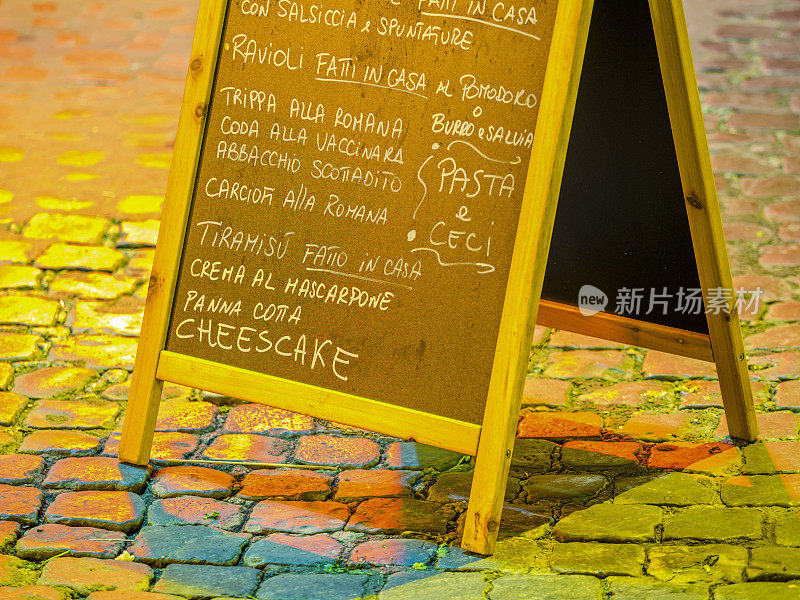 FATTI IN CASA
CON SALSICCIA e SPUNTATURE
RAVIOLI FATTI IN CASA AL POMODORO
o
BURRO e SALVIA
TRIPPA ALLA ROMANA
CODA ALLA VACCINARA
ABBACCHIO SCOTTADITO
PASTA
e
CECI
CARCIOFI ALLA ROMANA
TIRAMISÚ FATTO IN CASA
CREMA AL MASCARPONE
PANNA COTTA
CHEESCAKE
new 新片场素材